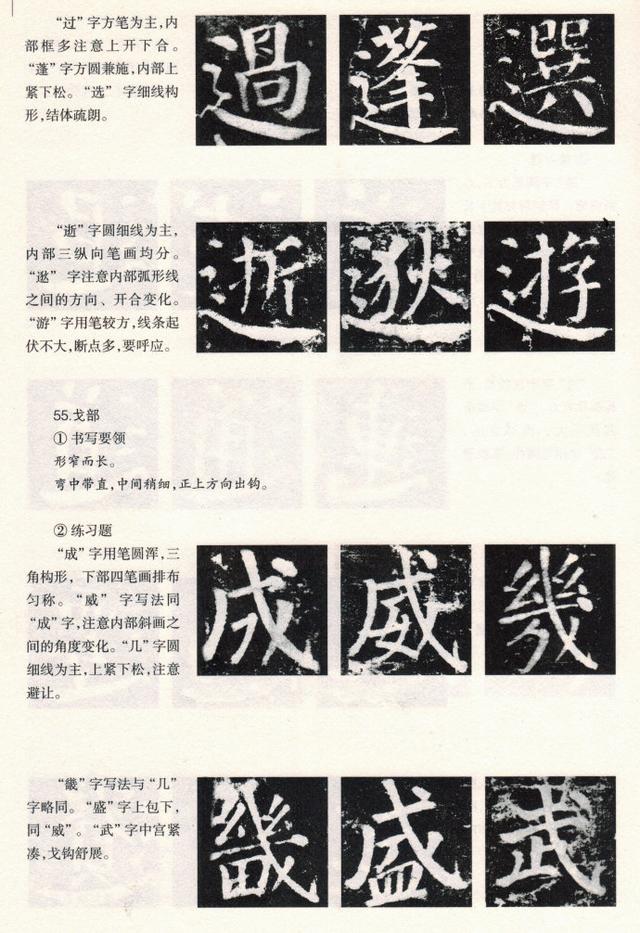 “过”字方笔为主，内
部框多注意上开下合。
“蓬”字方圆兼施，内部上
紧下松。“选” 字细线构
形，结体疏朗。
過 蓬 選
“逝”字圆细线为主，
内部三纵向笔画均分。
“逖” 字注意内部弧形线
之间的方向、开合变化。
“游”字用笔较方，线条起
伏不大，断点多，要呼应。
逝 逖 遊
55.戈部
① 书写要领
形窄而长。
弯中带直，中间稍细，正上方向出钩。
② 练习题
“成”字用笔圆浑，三
角构形，下部四笔画排布
匀称。“威” 字写法同
“成”字，注意内部斜画之
间的角度变化。“几”字圆
细线为主，上紧下松，注意
避让。
成 威 幾
“畿”字写法与“几”
字略同。“盛”字上包下，
同“威”。“武”字中宫紧
凑，戈钩舒展。
畿 盛 武